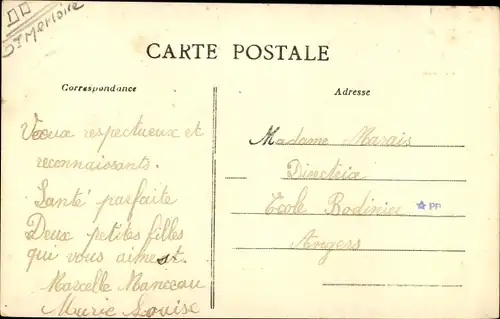 CARTE POSTALE
Correspondance
Adresse
Voeux respectueux et
reconnaissants.
Santé parfaite
Deux petites filles
qui vous aiment.
Marcelle Manceau
Marie Louise
Madame Marais
Directrice
Ecole Bodinier
PP
Angers